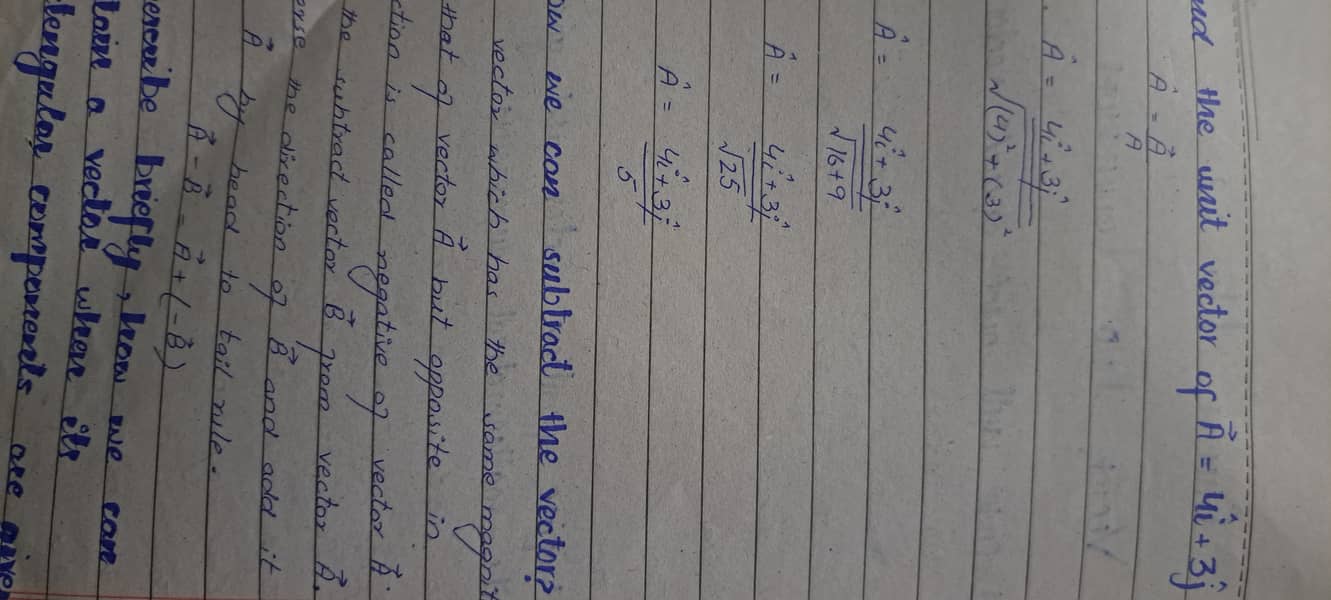 the unit vector of A⃗ = 4î + 3ĵ
Â = A⃗
A
Â = 4î + 3ĵ
√(4)² + (3)²
Â = 4î + 3ĵ
√16+9
Â = 4î + 3ĵ
√25
Â = 4î + 3ĵ
5
we can subtract the vector?
vector which has the same
that of vector A⃗ but opposite in
is called negative of vector A⃗.
the subtract vector B⃗ from vector A⃗.
the direction of B⃗ and add it
A⃗ by head to tail rule.
A⃗ - B⃗ = A⃗ + (-B⃗)
briefly, how we can
a vector when its
components are